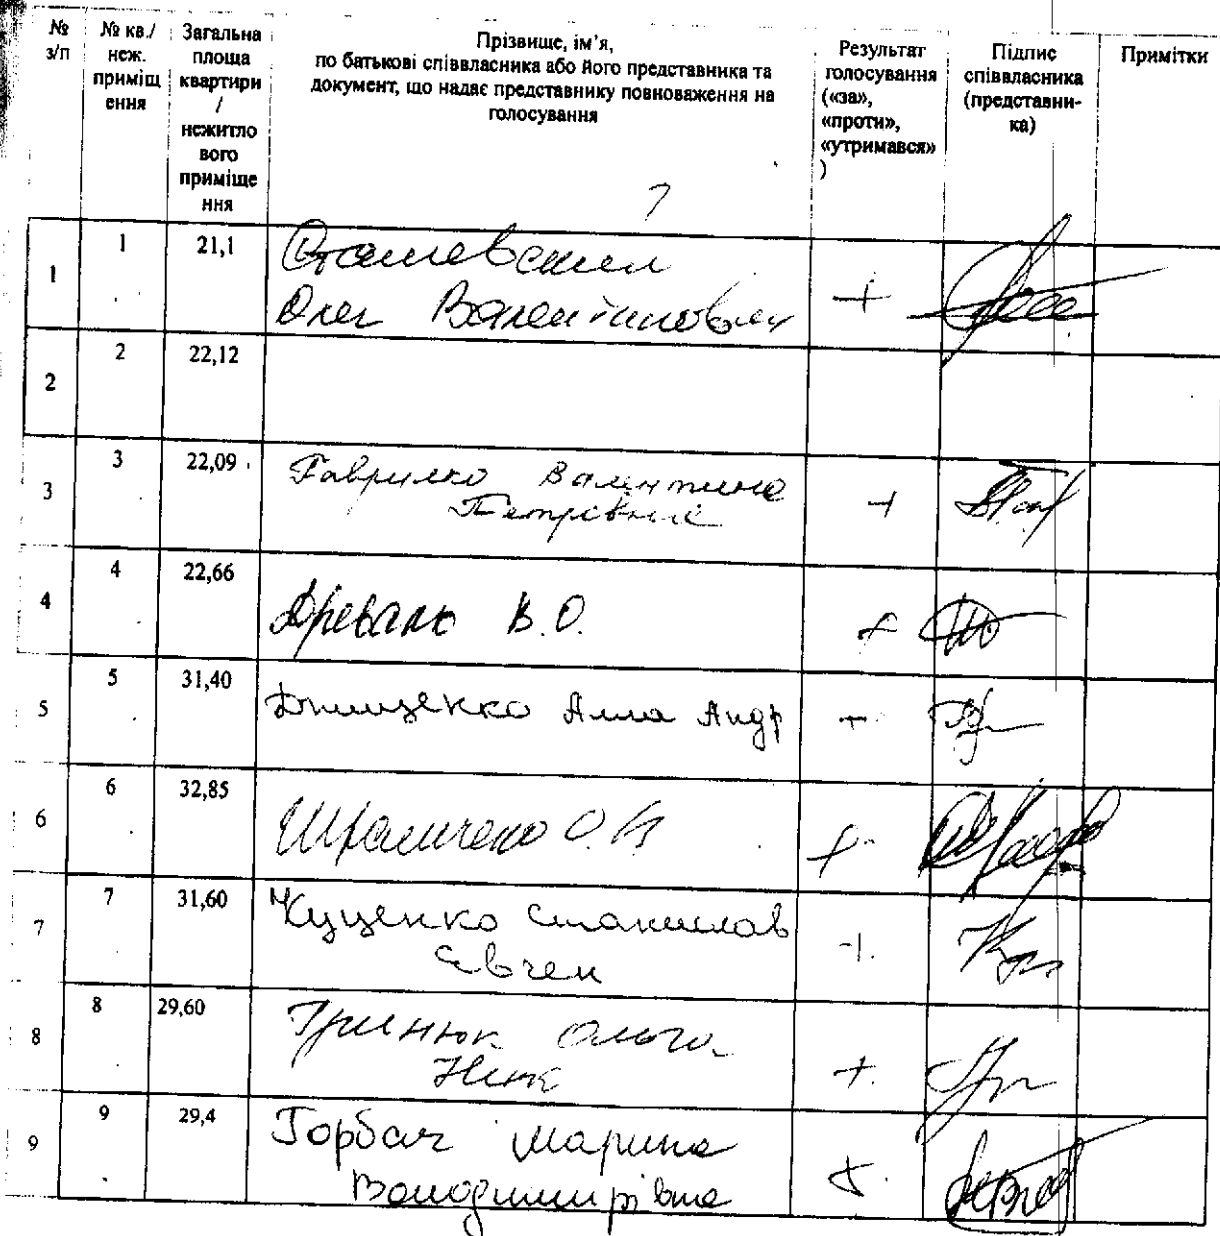 № з/п № кв./ неж. приміщення Загальна площа квартири / нежитлового приміщення Прізвище, ім’я, по батькові співвласника або його представника та документ, що надає представнику повноваження на голосування Результат голосування («за», «проти», «утримався») Підпис співвласника (представника) Примітки
1 1 21,1 Сташевський
Олег Валентинович +
2 2 22,12
3 3 22,09 Гаврилко Валентина
Петрівна +
4 4 22,66 Древаль В.О. +
5 5 31,40 Алла Андр +
6 6 32,85 О. +
7 7 31,60 Куценко Станислав
Євген +
8 8 29,60 Гринюк Ольга
+
9 9 29,4 Горбач Марина
Володимирівна +